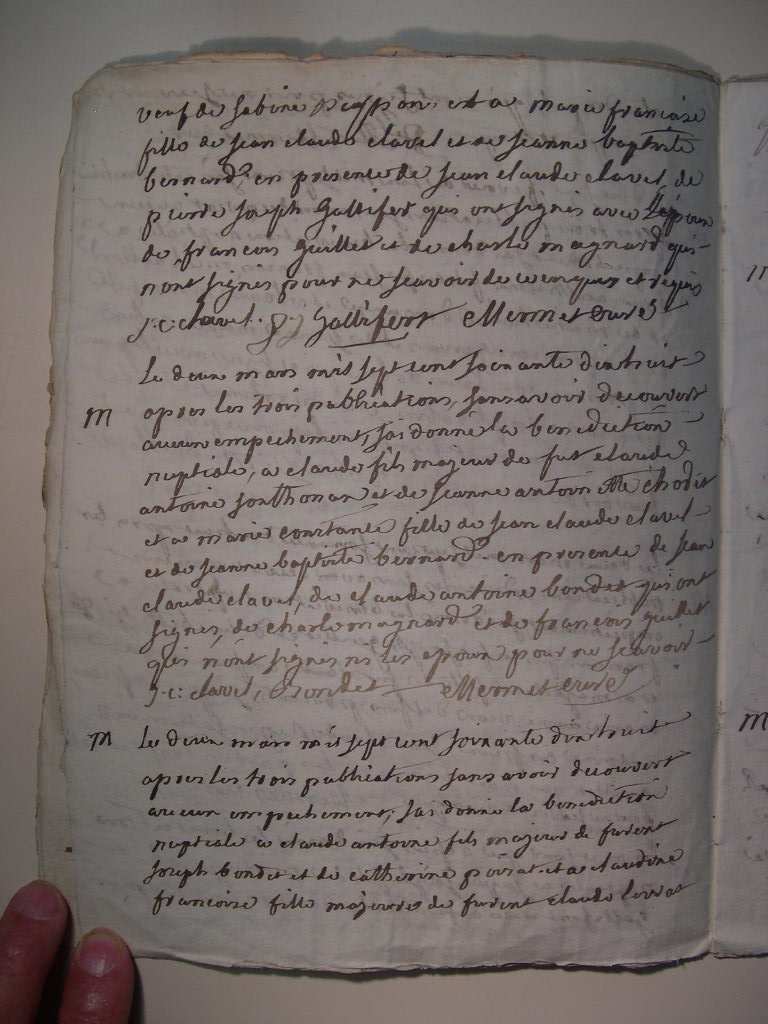 veuf de Sabine et a marie francoise
fille de Jean claude clavel et de Jeanne baptiste
bernard, en presence de Jean claude clavel, de
pierre Joseph Gallifet qui ont signés avec l'epoux
de francois Guillet et de charle magnard qui
nont signés pour ne scavoir de ce enquis et requis
J: c: clavel. J J Gallifert Mermet curé
Le deux mars mil sept cent soixante dixhuit
M
apres les trois publications, sans avoir decouvert
aucun empechement, jai donné la benediction
nuptiale, a claude fils majeur de fut claude
antoine Jonthonan et de Jeanne antoin
et a marie constance fille de Jean claude clavel
et de Jeanne baptiste bernard. en presence de Jean
claude clavel, de claude antoine bondet qui ont
signés, de charle magnard et de francois guillet
qui n'ont signés ni les epoux pour ne scavoir
J: c: clavel, Bondet Mermet curé
M
Le deux mars mil sept cent soixante dixhuit
apres les trois publications sans avoir decouvert
aucun empechement, jai donné la benediction
nuptiale a claude antoine fils majeur de furent
Joseph bondet et de catherine et a claudine
francoise fille majeure de furent claude
M